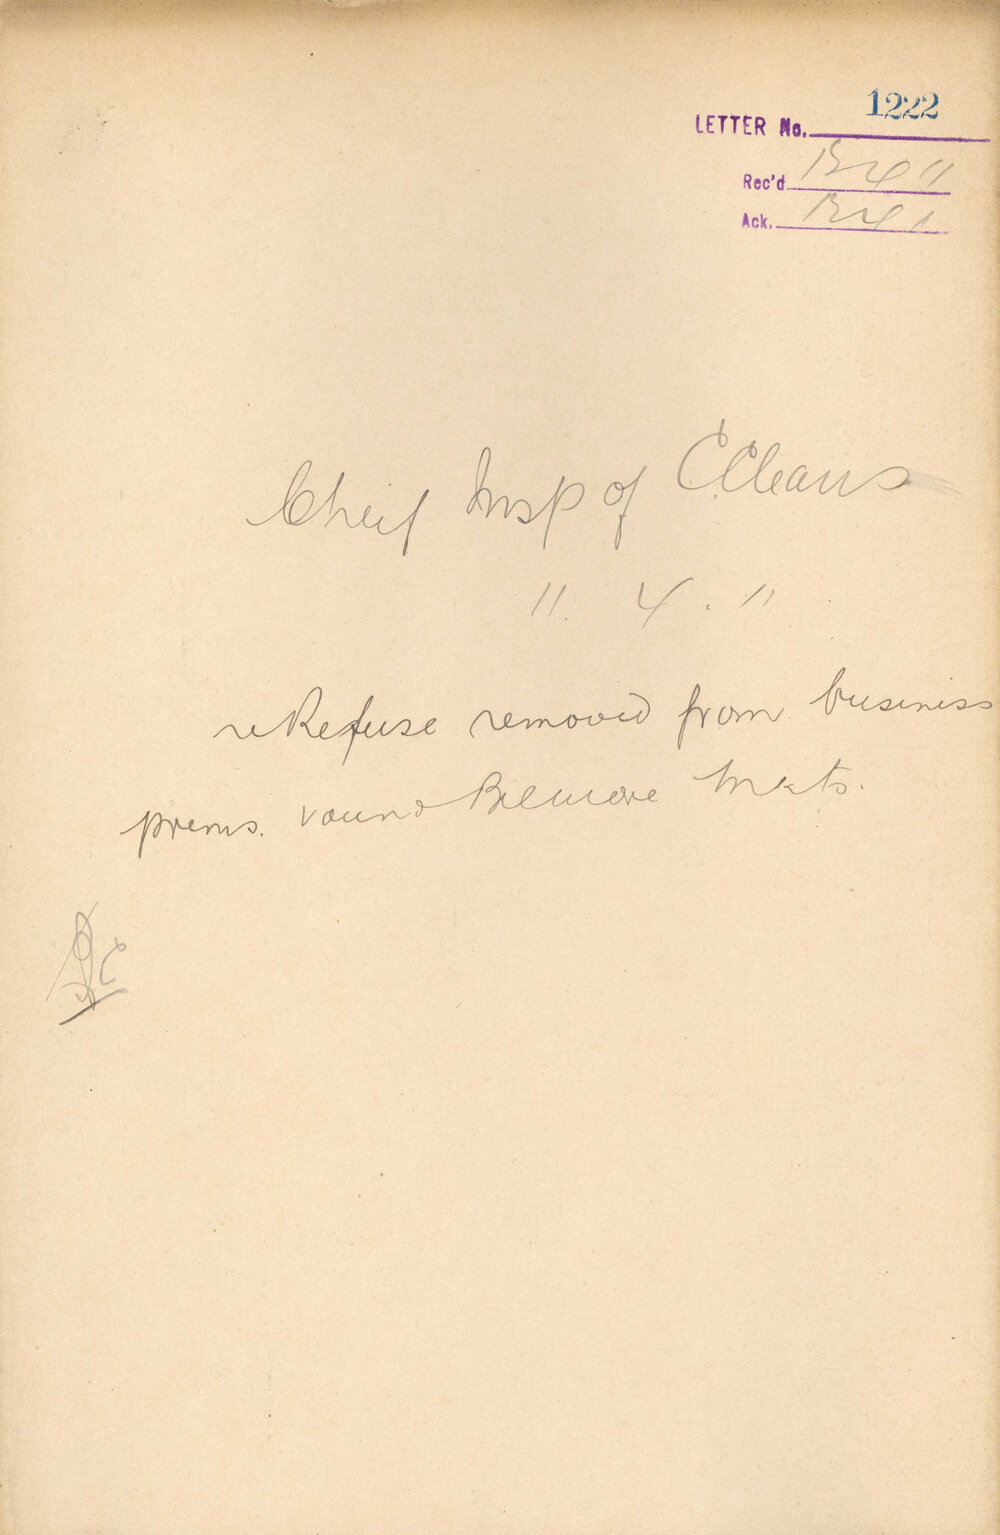 1222
LETTER No.
Rec'd 
Ack. 
Cheif Insp of C. Cleans
" 4. "
re Refuse removed from business
prems. round Belmore Mkts.